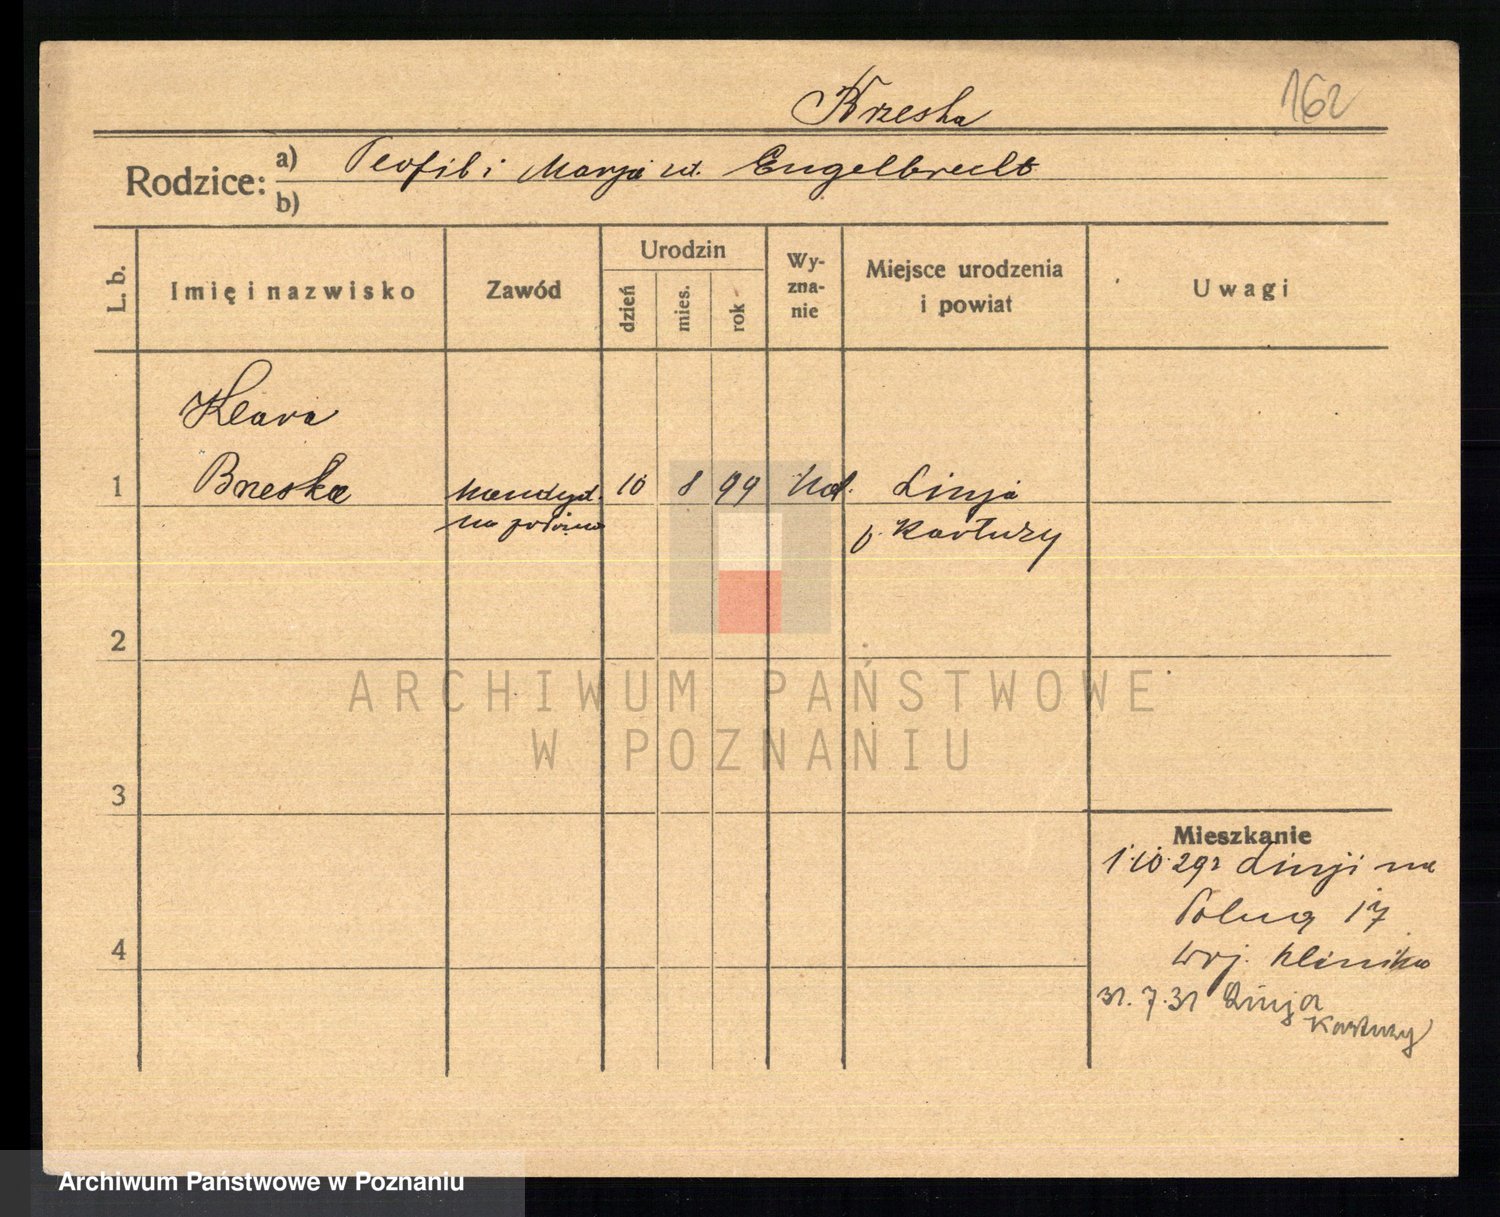 Brzeska
162
Rodzice:
a) Teofil i Marja z d. Engelbrecht
b)
L. b.
Imię i nazwisko
Zawód
Urodzin
dzień
mies.
rok
Wy-
zna-
nie
Miejsce urodzenia
i powiat
Uwagi
Klara
1 Brzeska kandyd. 10 8 99 kat. Linja
na położn p. Kartuzy
2
ARCHIWUM PAŃSTWOWE
W POZNANIU
3
Mieszkanie
1.10.29 z Linji na
Polną 17
woj. klinika
4
31.7.31 Linja
Kartuzy
Archiwum Państwowe w Poznaniu